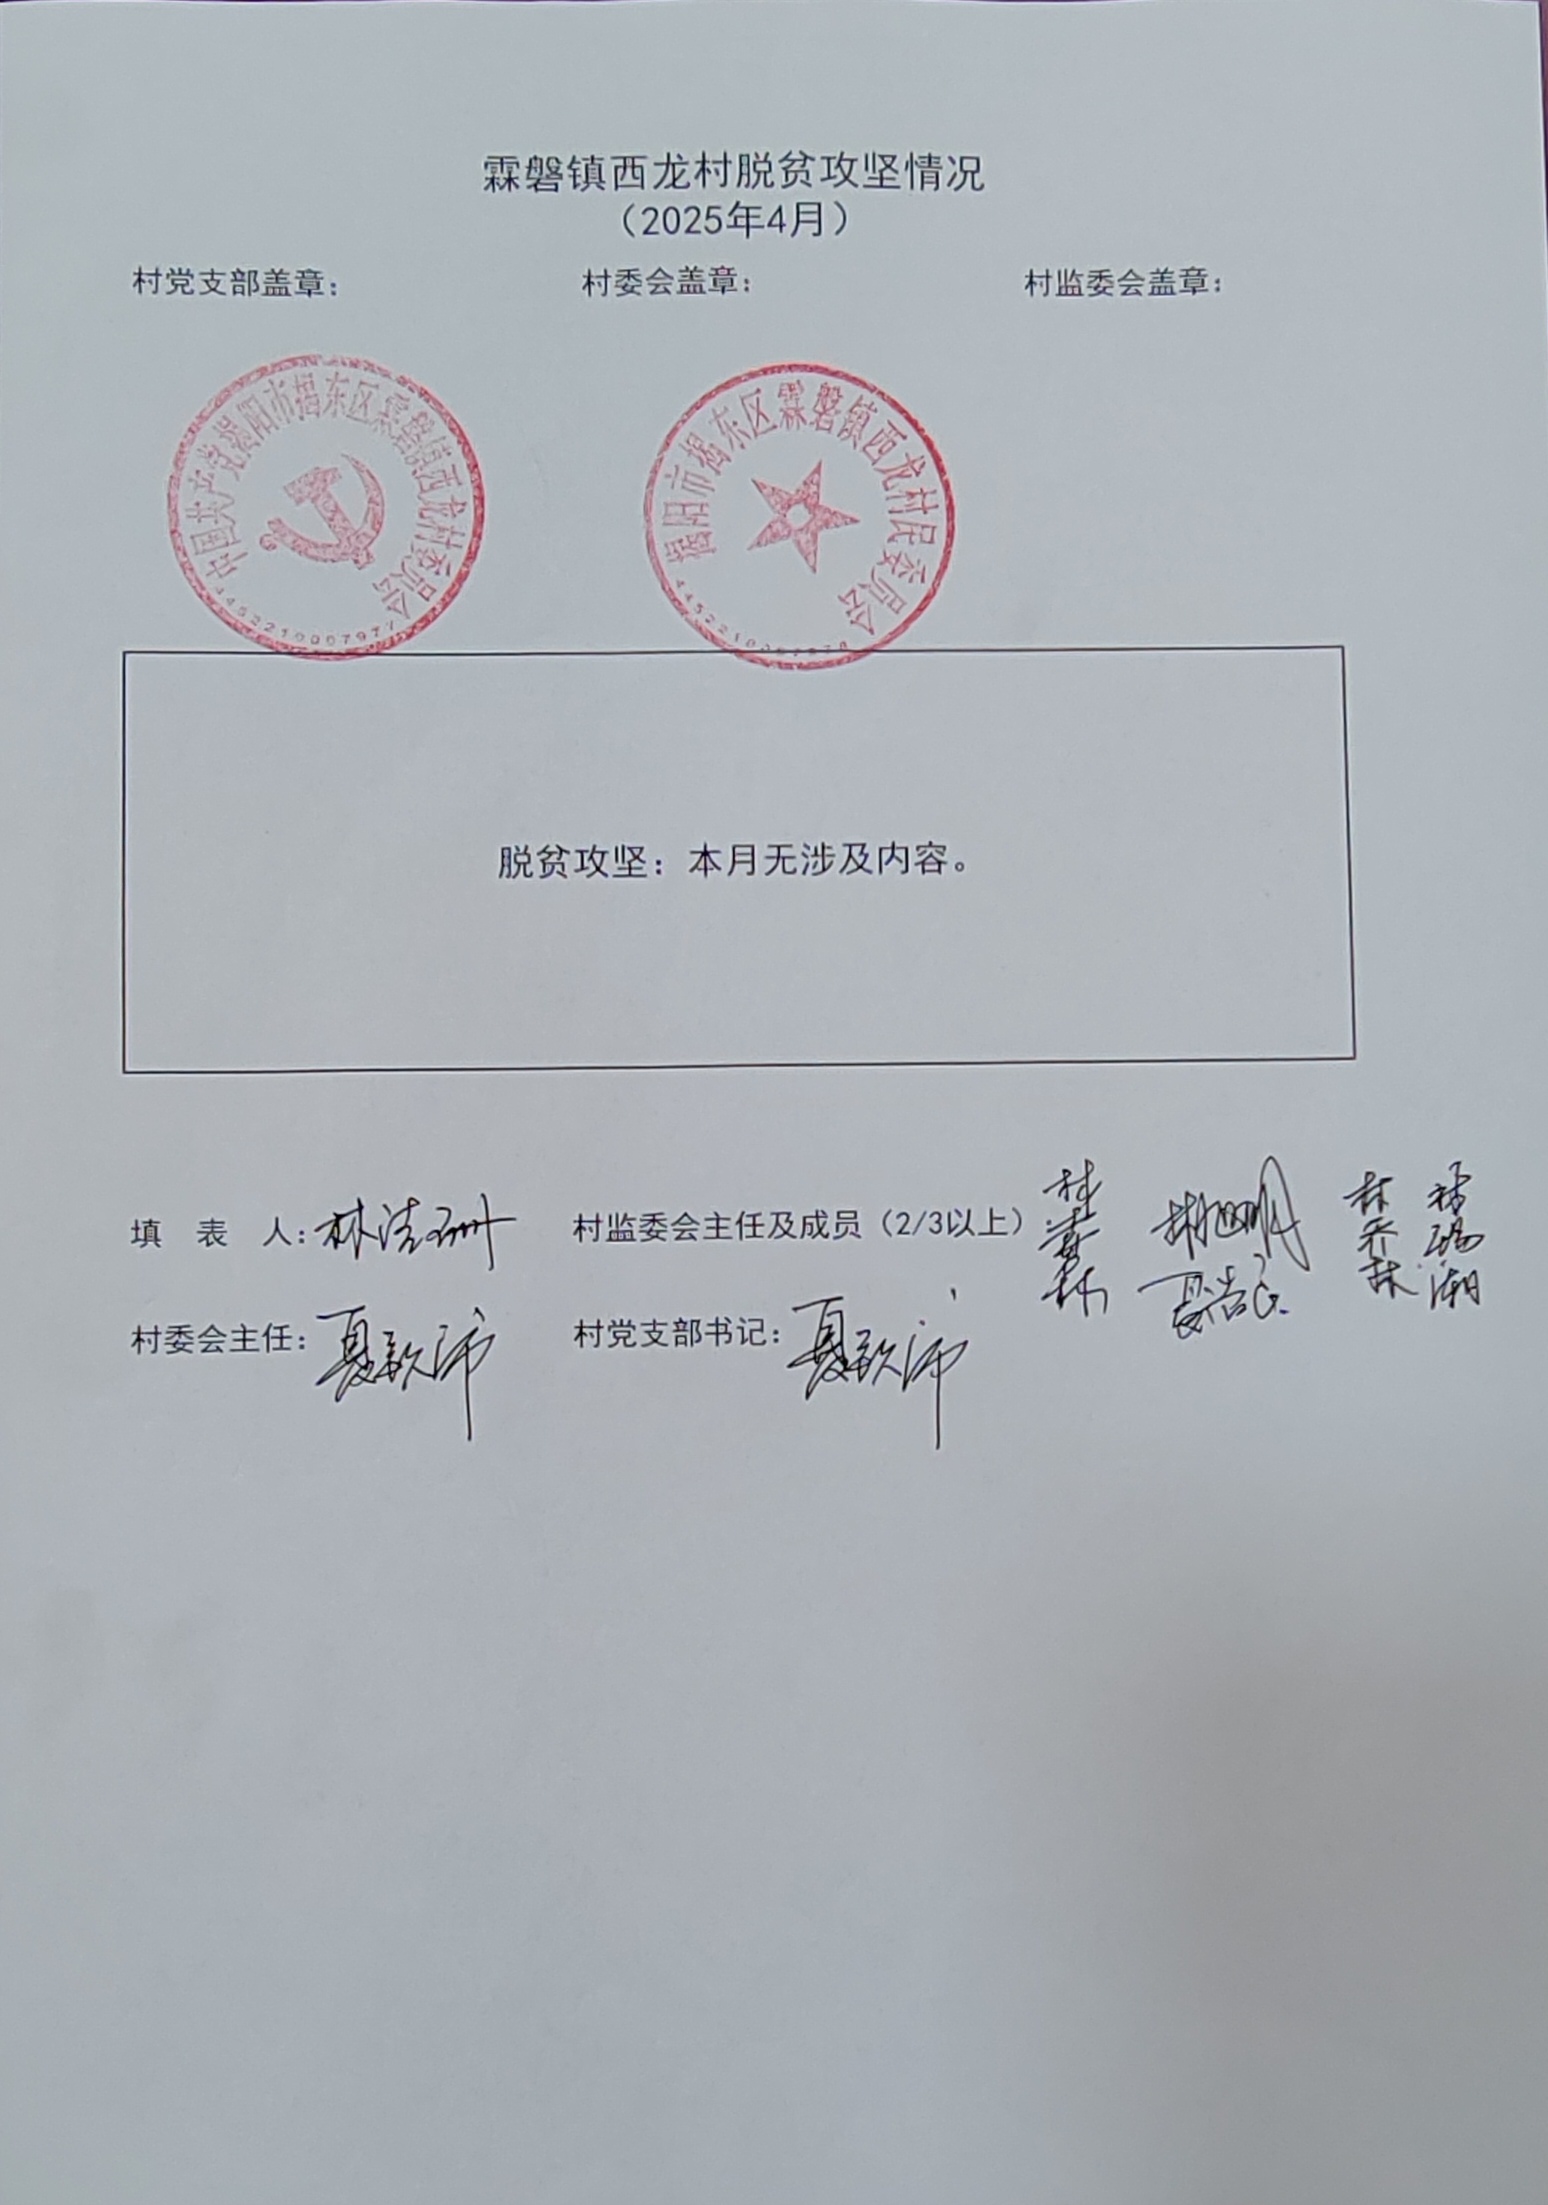 霖磐镇西龙村脱贫攻坚情况
（2025年4月）
村党支部盖章：
村委会盖章：
村监委会盖章：
中国共产党揭阳市揭东区霖磐镇西龙村委员会
揭阳市揭东区霖磐镇西龙村民委员会
脱贫攻坚：本月无涉及内容。
填表人：林洁珊
村监委会主任及成员（2/3以上）：
村委会主任：
村党支部书记：